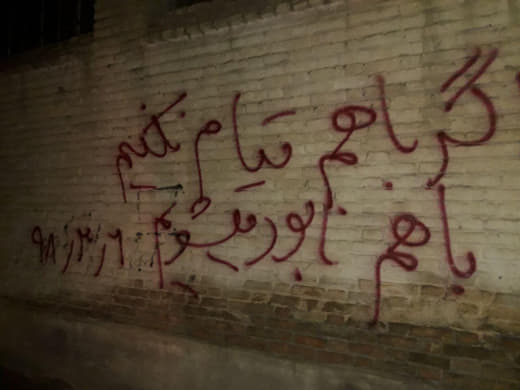 گر باهم قیام نکنیم
باهم نابود میشویم ۹۸/۳/۶